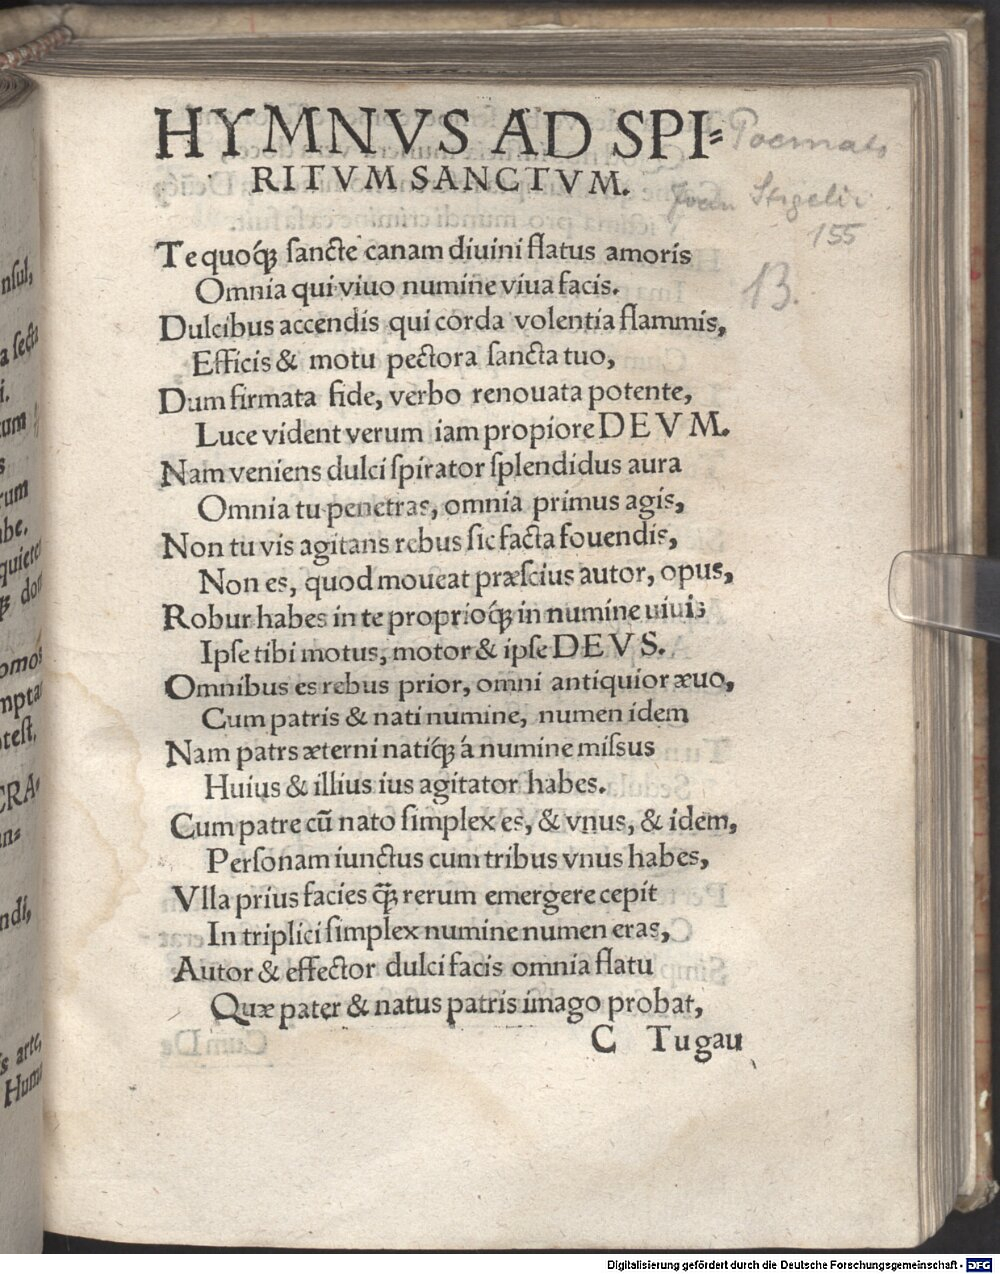 HYMNVS AD SPI⸗
RITVM SANCTVM.
Poemata
Joan Stigelii
155
13.
Te quoq́ꝫ sancte canam diuini flatus amoris
Omnia qui viuo numine viua facis.
Dulcibus accendis qui corda volentia flammis,
Efficis & motu pectora sancta tuo,
Dum firmata fide, verbo renouata potente,
Luce vident verum iam propiore DEVM.
Nam veniens dulci spirator splendidus aura
Omnia tu penetras, omnia primus agis,
Non tu vis agitans rebus sic facta fouendis,
Non es, quod moueat præscius autor, opus,
Robur habes in te proprioq́ꝫ in numine uiuis
Ipse tibi motus, motor & ipse DEVS.
Omnibus es rebus prior, omni antiquior æuo,
Cum patris & nati numine, numen idem
Nam patrs æterni natiq́ꝫ á numine missus
Huius & illius ius agitator habes.
Cum patre cū nato simplex es, & vnus, & idem,
Personam iunctus cum tribus vnus habes,
Vlla prius facies q̄ꝫ rerum emergere cepit
In triplici simplex numine numen eras,
Autor & effector dulci facis omnia flatu
Quæ pater & natus patris imago probat,
C Tugau
nsul,
a secta
i.
tum
s
rum
abe.
quieter
dom
omos
mptar
otest.
CRA-
n⸗
ndi,
s arte,
Huma
Digitalisierung gefördert durch die Deutsche Forschungsgemeinschaft - DFG